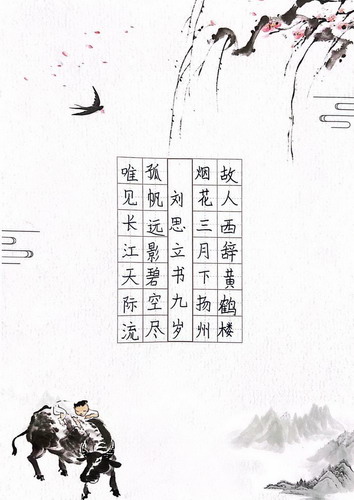 故人西辞黄鹤楼
烟花三月下扬州
刘思立书九岁
孤帆远影碧空尽
唯见长江天际流